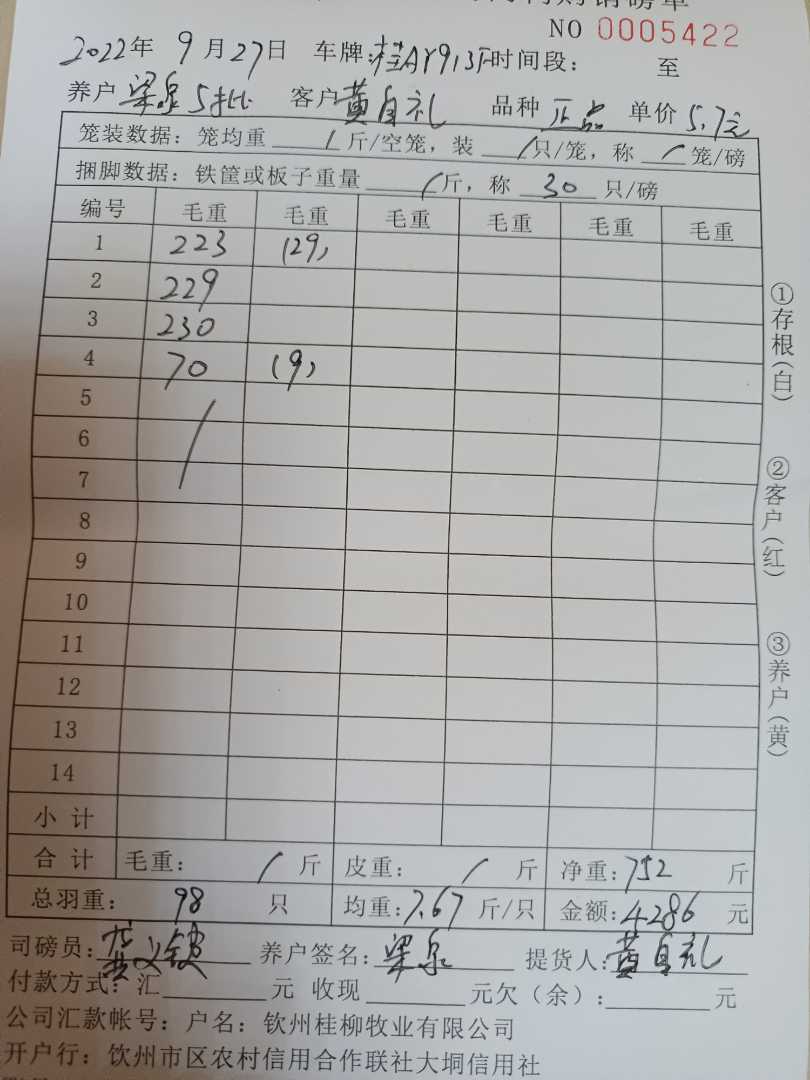 NO 0005422
2022年 9月27日 车牌:桂AY913F 时间段: 至
养户 梁泉5批 客户 黄自礼 品种 正品 单价 5.7元
笼装数据：笼均重 / 斤/空笼，装 / 只/笼，称 / 笼/磅
捆脚数据：铁筐或板子重量 / 斤，称 30 只/磅
编号 毛重 毛重 毛重 毛重 毛重 毛重
1 223 (29)
2 229
3 230
4 70 (9)
5
6
7
8
9
10
11
12
13
14
小计
合计 毛重: / 斤 皮重: / 斤 净重:752 斤
总羽重: 98 只 均重:7.67 斤/只 金额:4286 元
司磅员: 养户签名: 梁泉 提货人: 黄自礼
付款方式: 汇 元 收现 元欠（余）: 元
公司汇款帐号：户名：钦州桂柳牧业有限公司
开户行：饮州市区农村信用合作联社大垌信用社
①存根(白)
②客户(红)
③养户(黄)